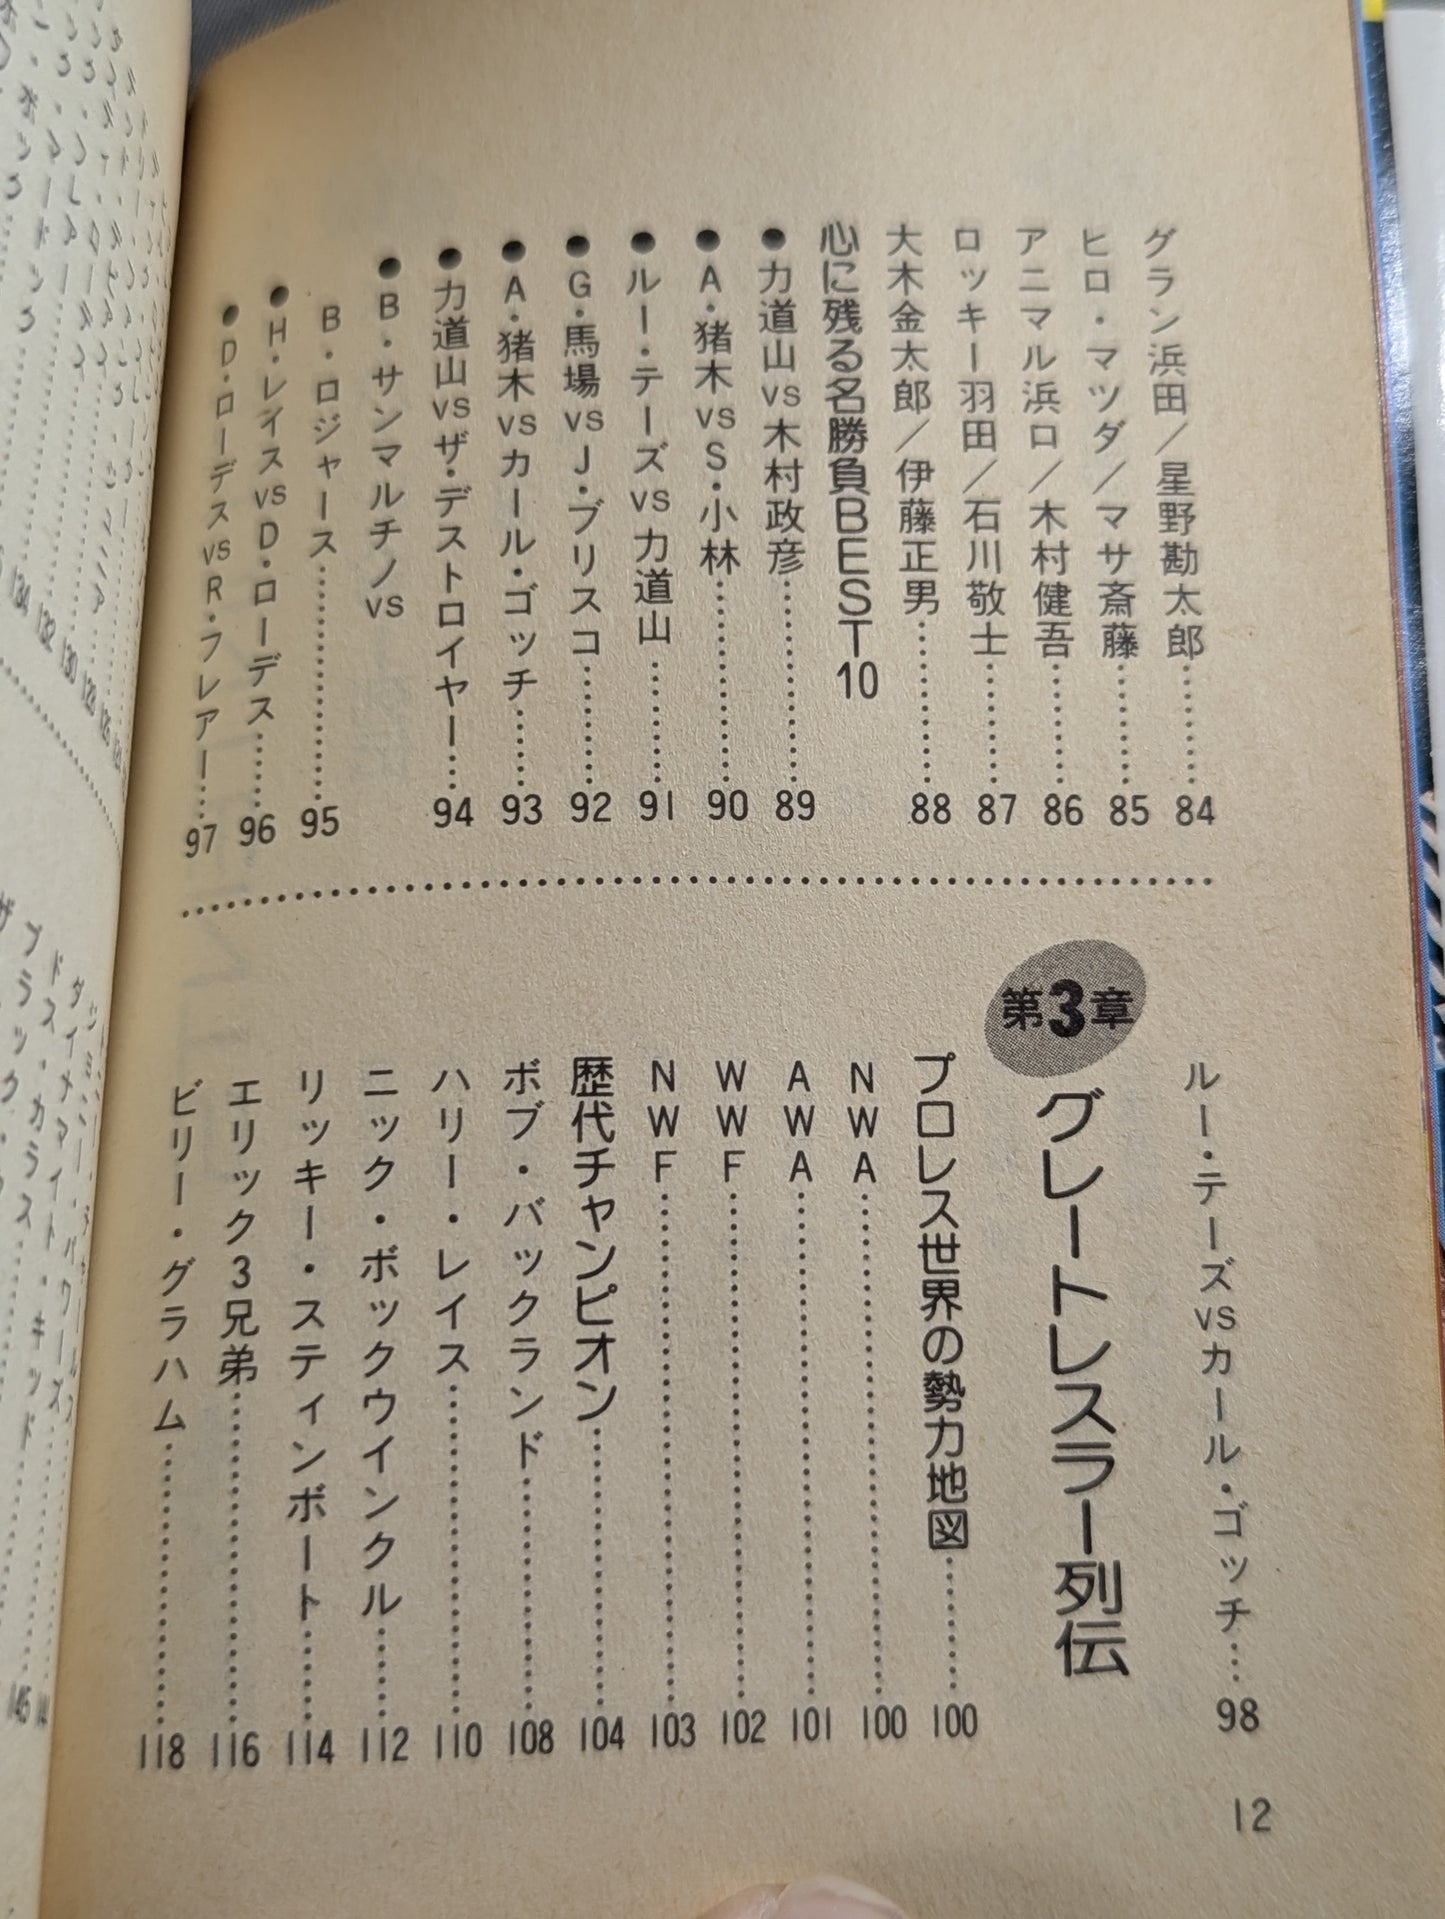 グラン浜田／星野勘太郎……84
ヒロ・マツダ／マサ斎藤……85
アニマル浜口／木村健吾……86
ロッキー羽田／石川敬士……87
大木金太郎／伊藤正男……88
心に残る名勝負BEST10
●力道山vs木村政彦……89
●A・猪木vsS・小林……90
●ルー・テーズvs力道山……91
●G・馬場vsJ・ブリスコ……92
●A・猪木vsカール・ゴッチ……93
●力道山vsザ・デストロイヤー……94
●B・サンマルチノvs
B・ロジャース……95
●H・レイスvsD・ローデス……96
●D・ローデスvsR・フレアー……97
ルー・テーズvsカール・ゴッチ……98
第3章 グレートレスラー列伝
プロレス世界の勢力地図……100
NWA……100
AWA……101
WWF……102
NWF……103
歴代チャンピオン……104
ボブ・バックランド……108
ハリー・レイス……110
ニック・ボックウインクル……112
リッキー・スティンボート……114
エリック3兄弟……116
ビリー・グラハム……118
12
134
132
130
145
ダイナマイト・キッド